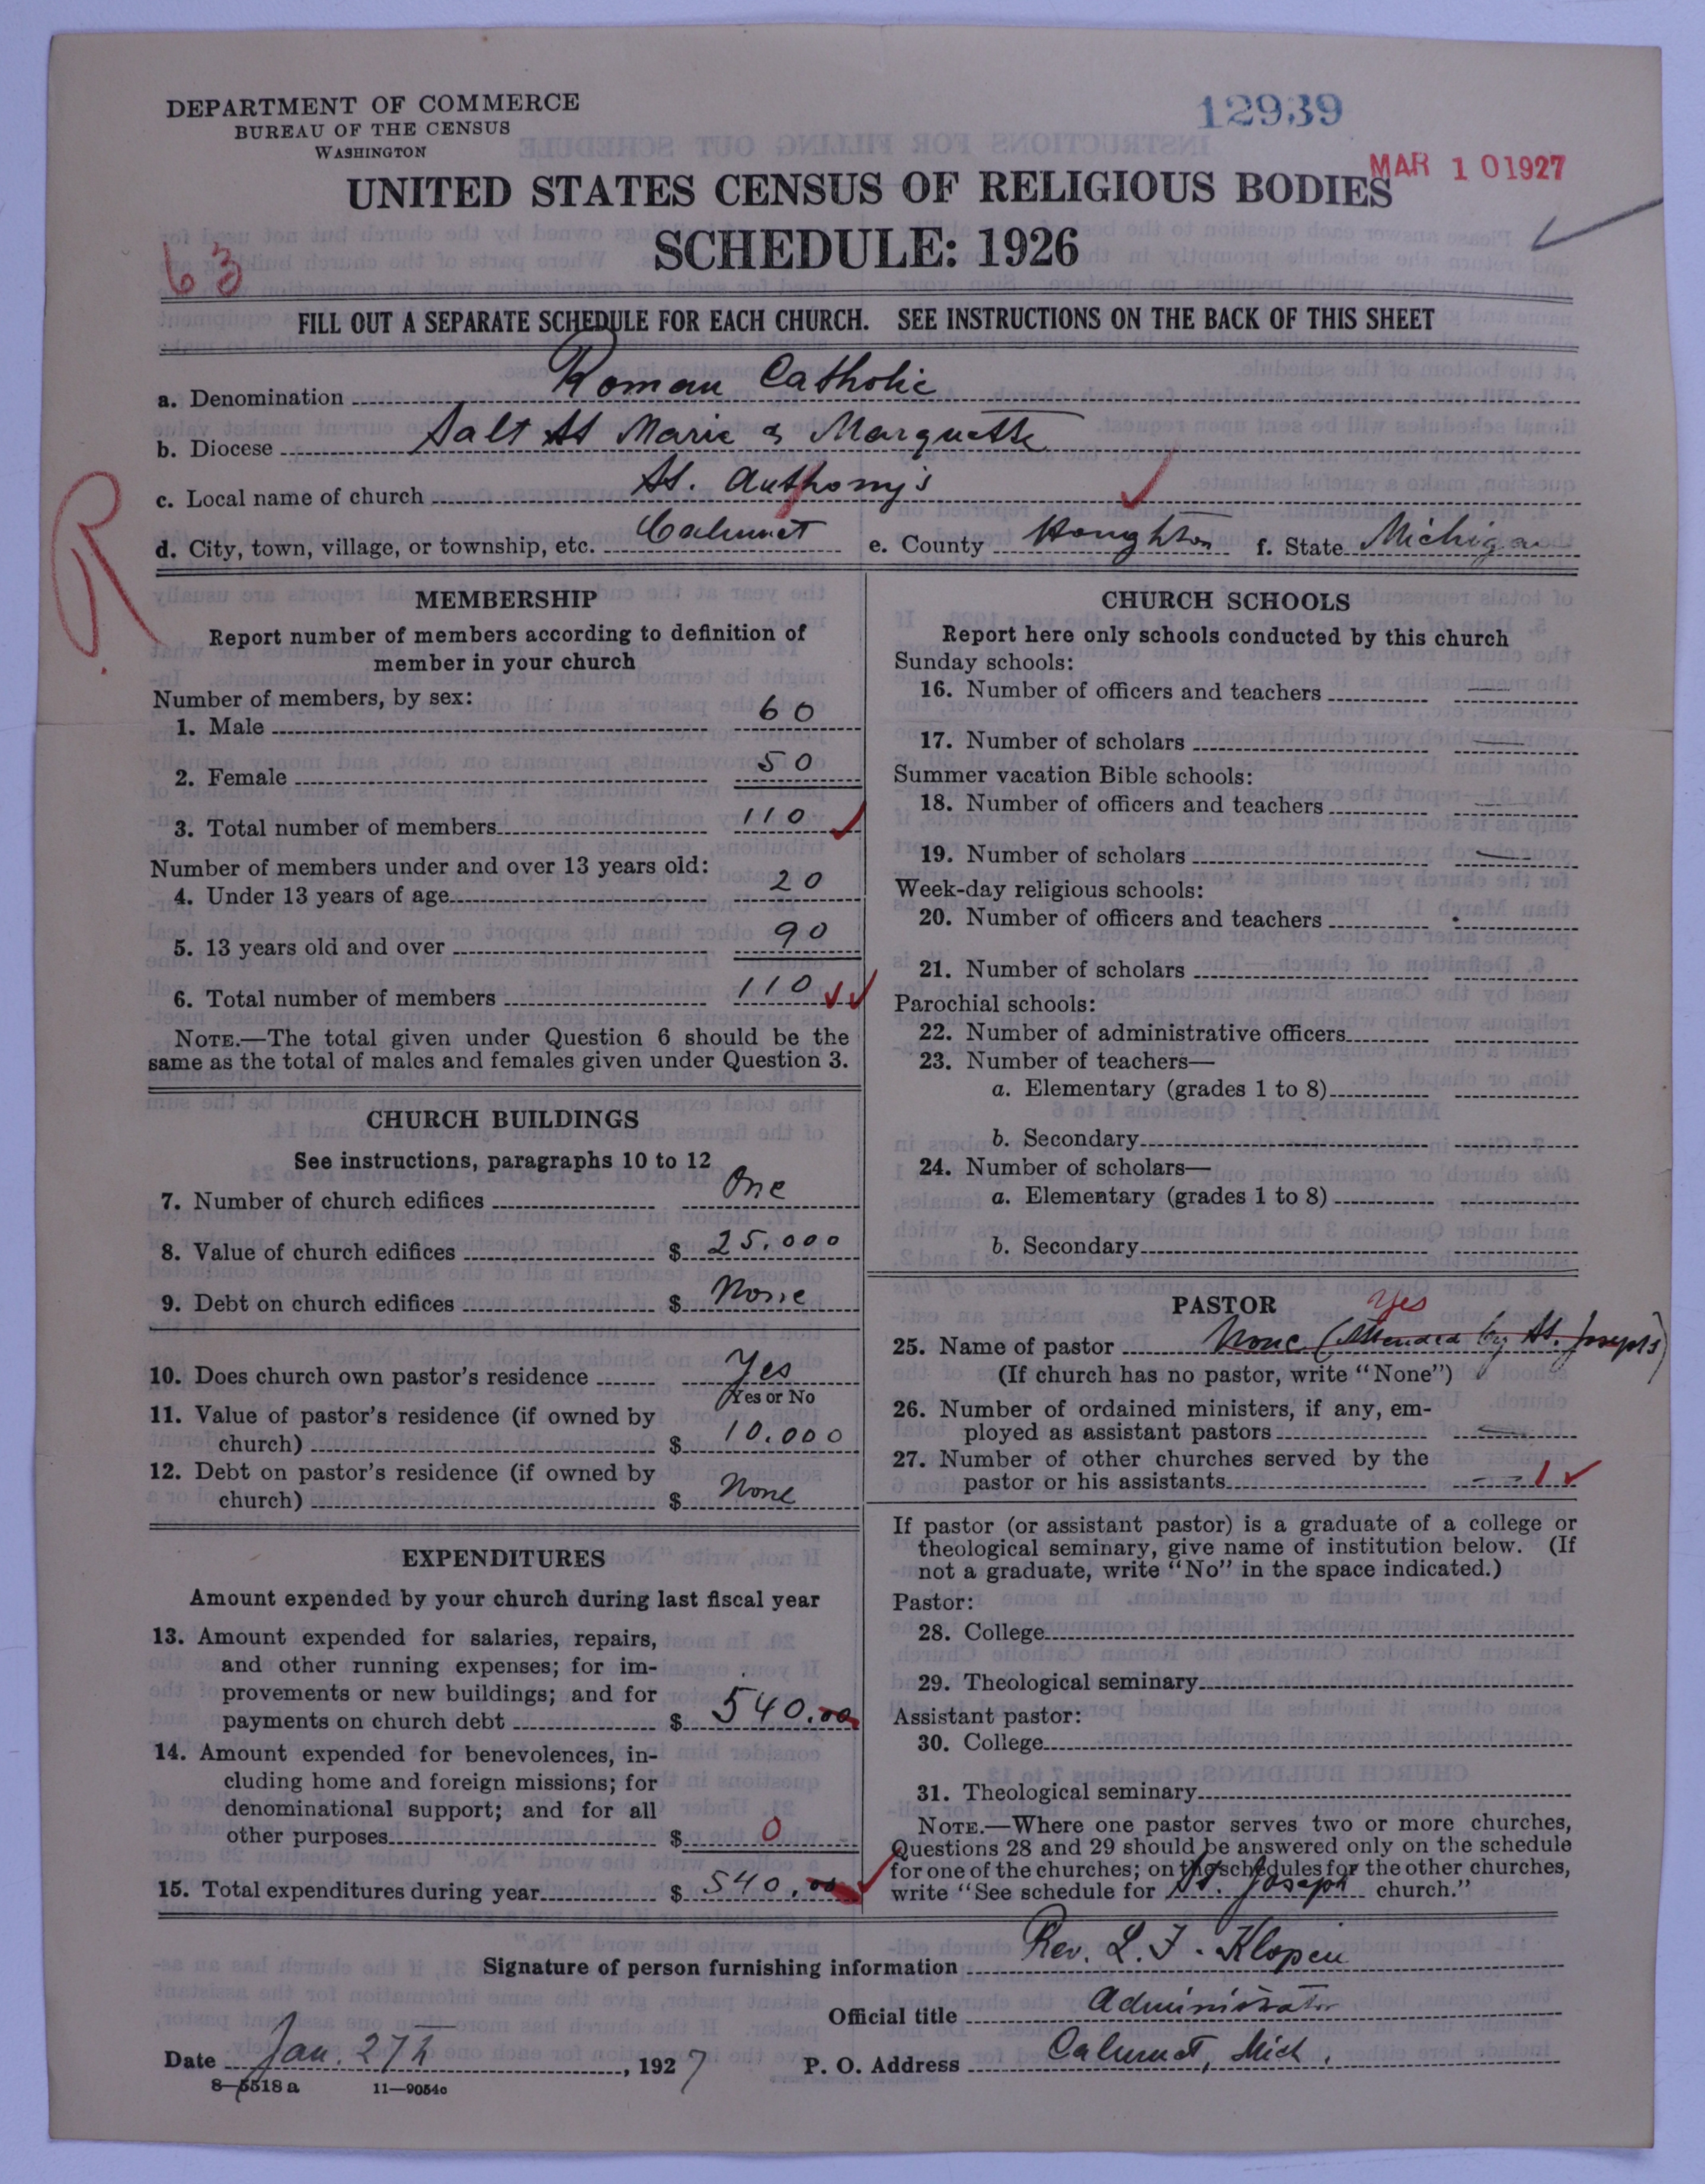 DEPARTMENT OF COMMERCE
BUREAU OF THE CENSUS
WASHINGTON
12939
MAR 10 1927
UNITED STATES CENSUS OF RELIGIOUS BODIES
SCHEDULE: 1926
63
FILL OUT A SEPARATE SCHEDULE FOR EACH CHURCH. SEE INSTRUCTIONS ON THE BACK OF THIS SHEET
a. Denomination Roman Catholic
b. Diocese Salt St Marie & Marquette
c. Local name of church St. Anthony's
R
d. City, town, village, or township, etc. Calumet e. County Houghton f. State Michigan
MEMBERSHIP
Report number of members according to definition of
member in your church
Number of members, by sex:
1. Male 60
2. Female 50
3. Total number of members 110
Number of members under and over 13 years old:
4. Under 13 years of age 20
5. 13 years old and over 90
6. Total number of members 110
NOTE.—The total given under Question 6 should be the
same as the total of males and females given under Question 3.
CHURCH BUILDINGS
See instructions, paragraphs 10 to 12
7. Number of church edifices One
8. Value of church edifices $ 25.000
9. Debt on church edifices $ None
10. Does church own pastor's residence Yes
Yes or No
11. Value of pastor's residence (if owned by
church) $ 10.000
12. Debt on pastor's residence (if owned by
church) $ None
EXPENDITURES
Amount expended by your church during last fiscal year
13. Amount expended for salaries, repairs,
and other running expenses; for im-
provements or new buildings; and for
payments on church debt $ 540.00
14. Amount expended for benevolences, in-
cluding home and foreign missions; for
denominational support; and for all
other purposes $ 0
15. Total expenditures during year $ 540.00
CHURCH SCHOOLS
Report here only schools conducted by this church
Sunday schools:
16. Number of officers and teachers —
17. Number of scholars —
Summer vacation Bible schools:
18. Number of officers and teachers —
19. Number of scholars —
Week-day religious schools:
20. Number of officers and teachers
21. Number of scholars
Parochial schools:
22. Number of administrative officers
23. Number of teachers—
a. Elementary (grades 1 to 8)
b. Secondary
24. Number of scholars—
a. Elementary (grades 1 to 8)
b. Secondary
PASTOR
Yes
25. Name of pastor None (Attended by St. Joseph's)
(If church has no pastor, write "None")
26. Number of ordained ministers, if any, em-
ployed as assistant pastors —
27. Number of other churches served by the
pastor or his assistants 1
If pastor (or assistant pastor) is a graduate of a college or
theological seminary, give name of institution below. (If
not a graduate, write "No" in the space indicated.)
Pastor:
28. College
29. Theological seminary
Assistant pastor:
30. College
31. Theological seminary
NOTE.—Where one pastor serves two or more churches,
Questions 28 and 29 should be answered only on the schedule
for one of the churches; on the schedules for the other churches,
write "See schedule for St. Joseph church."
Signature of person furnishing information Rev. L. F. Klopcic
Official title Administrator
Date Jan. 27th, 1927 P. O. Address Calumet, Mich.
8—5518 a 11—9054c